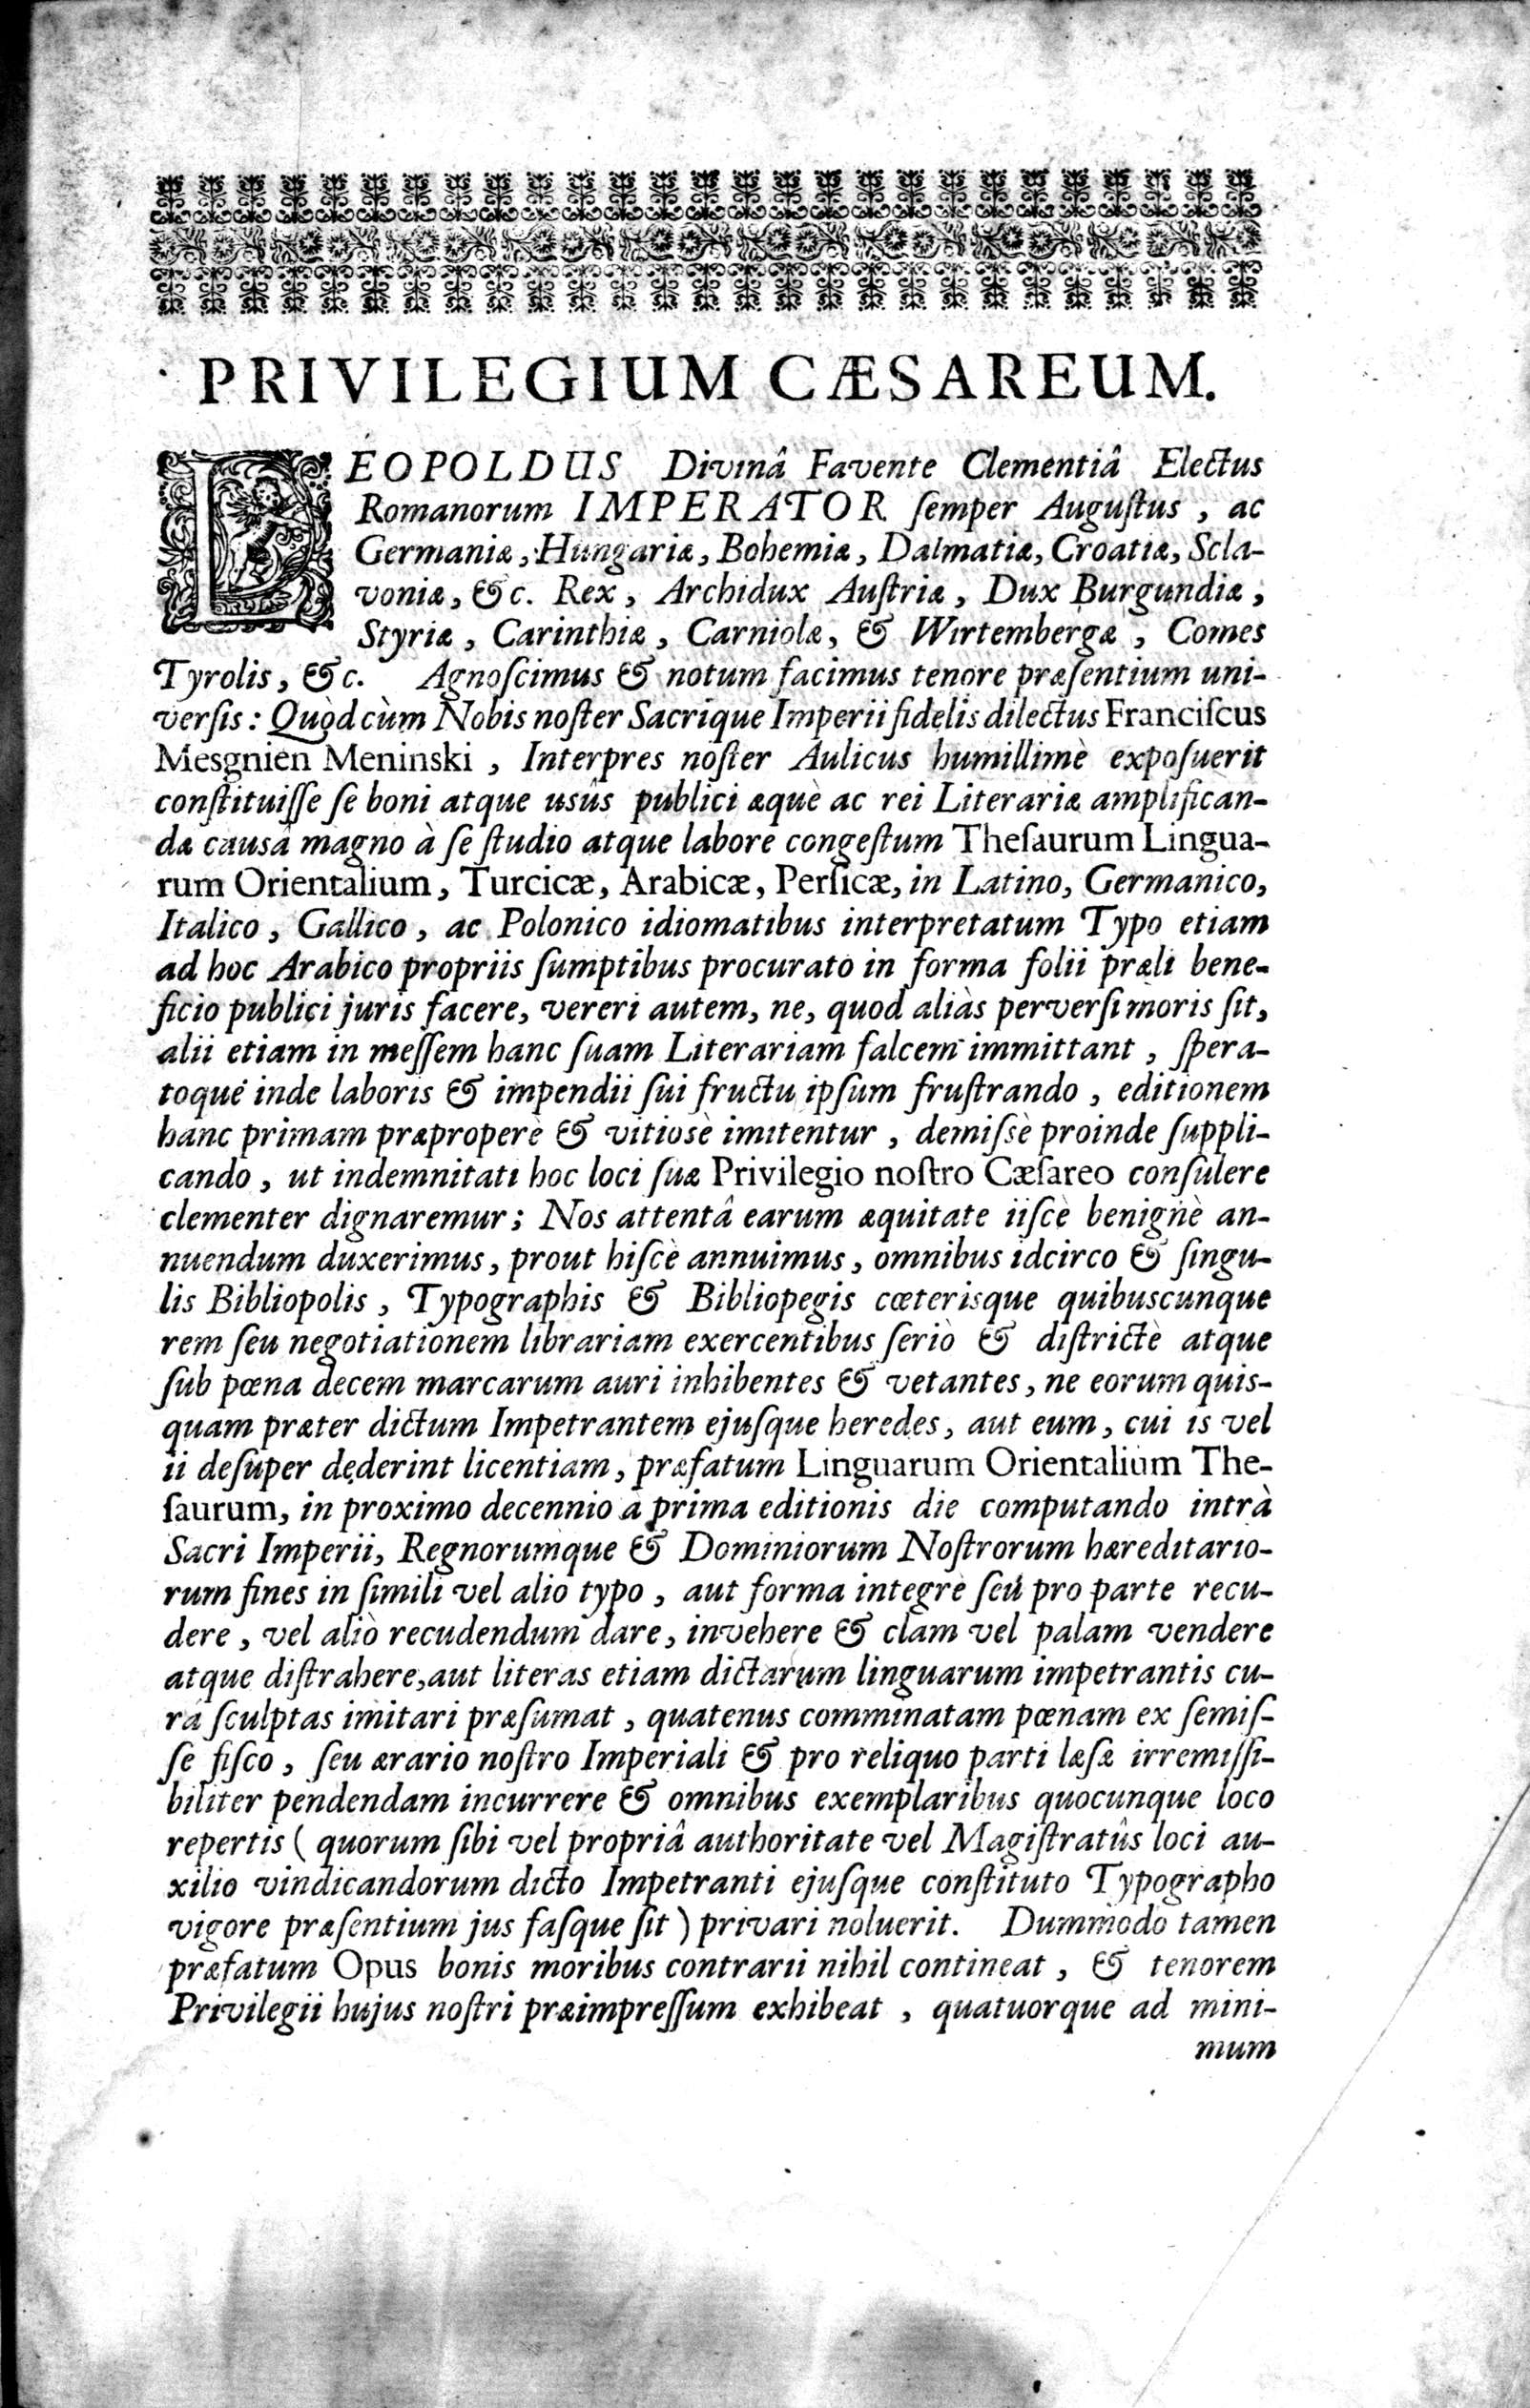 PRIVILEGIUM CÆSAREUM.
LEOPOLDUS Divinâ Favente Clementiâ Electus
Romanorum IMPERATOR ſemper Auguſtus, ac
Germaniæ, Hungariæ, Bohemiæ, Dalmatiæ, Croatiæ, Scla-
voniæ, &c. Rex, Archidux Auſtriæ, Dux Burgundiæ,
Styriæ, Carinthiæ, Carniolæ, & Wirtembergæ, Comes
Tyrolis, &c. Agnoſcimus & notum facimus tenore præſentium uni-
verſis: Quòd cùm Nobis noſter Sacrique Imperii fidelis dilectus Franciſcus
Mesgnien Meninski, Interpres noſter Aulicus humillimè expoſuerit
conſtituiſſe ſe boni atque usûs publici æquè ac rei Literariæ amplifican-
dæ causâ magno à ſe ſtudio atque labore congeſtum Theſaurum Lingua-
rum Orientalium, Turcicæ, Arabicæ, Perſicæ, in Latino, Germanico,
Italico, Gallico, ac Polonico idiomatibus interpretatum Typo etiam
ad hoc Arabico propriis ſumptibus procurato in forma folii præli bene-
ficio publici juris facere, vereri autem, ne, quod aliàs perverſi moris ſit,
alii etiam in meſſem hanc ſuam Literariam falcem immittant, ſpera-
toque inde laboris & impendii ſui fructu ipſum fruſtrando, editionem
hanc primam præproperè & vitiosè imitentur, demiſsè proinde ſuppli-
cando, ut indemnitati hoc loci ſuæ Privilegio noſtro Cæſareo conſulere
clementer dignaremur; Nos attentâ earum æquitate iiſcè benignè an-
nuendum duxerimus, prout hiſcè annuimus, omnibus idcirco & ſingu-
lis Bibliopolis, Typographis & Bibliopegis cœterisque quibuscunque
rem ſeu negotiationem librariam exercentibus ſeriò & diſtrictè atque
ſub pœna decem marcarum auri inhibentes & vetantes, ne eorum quis-
quam præter dictum Impetrantem ejuſque heredes, aut eum, cui is vel
ii deſuper dederint licentiam, præfatum Linguarum Orientalium The-
ſaurum, in proximo decennio à prima editionis die computando intrà
Sacri Imperii, Regnorumque & Dominiorum Noſtrorum hæreditario-
rum fines in ſimili vel alio typo, aut forma integrè ſeu pro parte recu-
dere, vel aliò recudendum dare, invehere & clam vel palam vendere
atque diſtrahere, aut literas etiam dictarum linguarum impetrantis cu-
râ ſculptas imitari præſumat, quatenus comminatam pœnam ex ſemiſ-
ſe fiſco, ſeu ærario noſtro Imperiali & pro reliquo parti læſæ irremiſſi-
biliter pendendam incurrere & omnibus exemplaribus quocunque loco
repertis ( quorum ſibi vel propriâ authoritate vel Magiſtratûs loci au-
xilio vindicandorum dicto Impetranti ejuſque conſtituto Typographo
vigore præſentium jus faſque ſit ) privari noluerit. Dummodo tamen
præfatum Opus bonis moribus contrarii nihil contineat, & tenorem
Privilegii hujus noſtri præimpreſſum exhibeat, quatuorque ad mini-
mum